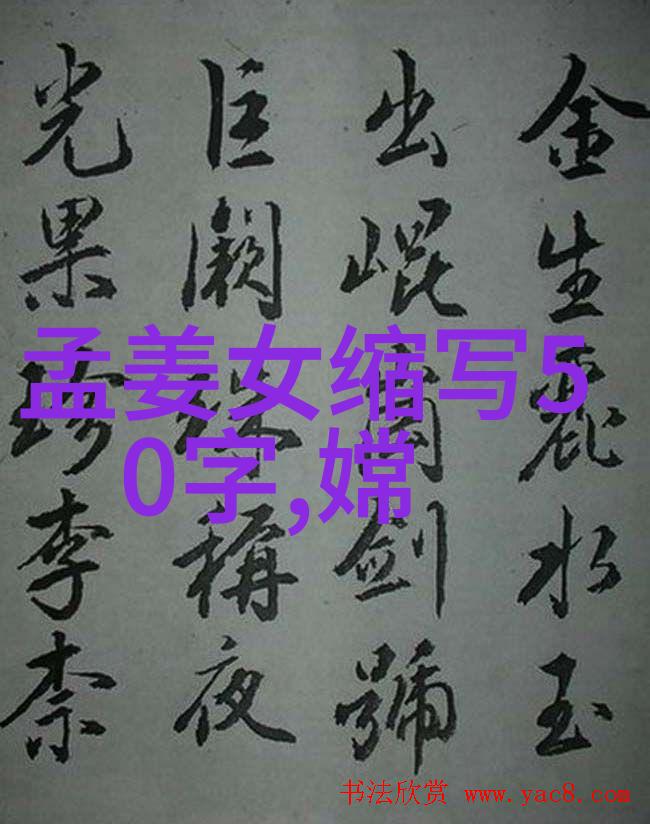 金生麗水玉
出崐岡劍號
巨闕珠稱夜
光果珍李柰
孟姜女缩写5
0字,嫦
书法欣赏 www.yac8.com